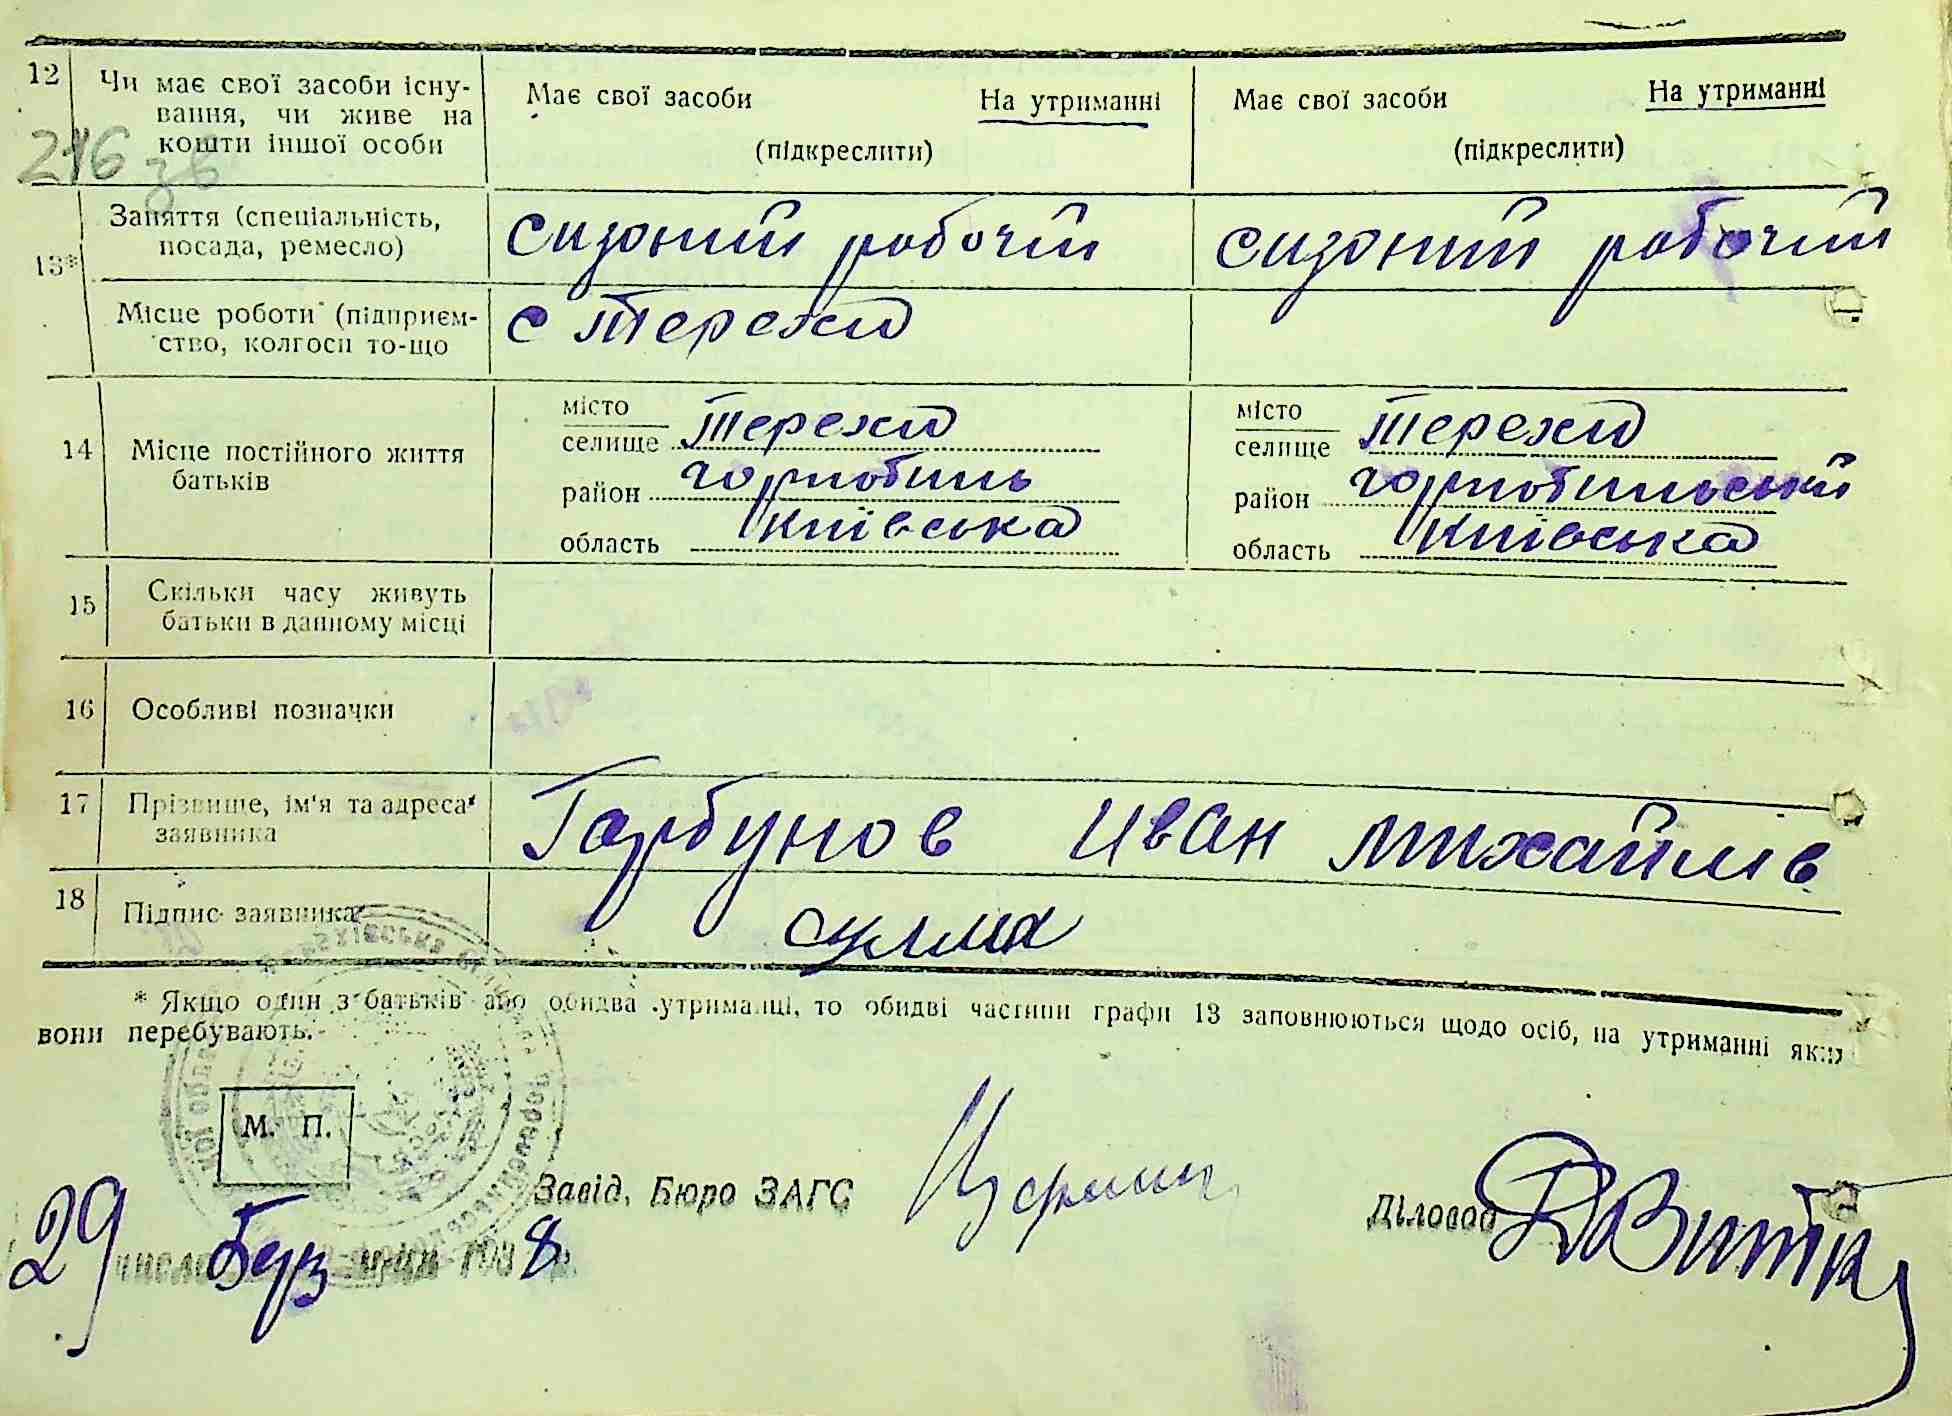 12 Чи має свої засоби існу-
вання, чи живе на
кошти іншої особи
Має свої засоби На утриманні
(підкреслити)
Має свої засоби На утриманні
(підкреслити)
216
зв
13* Заняття (спеціальність,
посада, ремесло)
сизоний робочий
сизоний робочий
Місце роботи (підприєм-
ство, колгосп то-що
с Терехи
14 Місце постійного життя
батьків
місто
селище Терехи
район чорнобиль
область Київська
місто
селище Терехи
район чорнобильський
область Київська
15 Скільки часу живуть
батьки в данному місці
16 Особливі позначки
17 Прізвище, ім'я та адреса
заявника
Горбунов Иван михайлів
18 Підпис заявника
* Якщо один з батьків або обидва утриманці, то обидві частини графи 13 заповнюються щодо осіб, на утриманні яких
вони перебувають.
М. П.
Завід. Бюро ЗАГС
Діловод
29 число Бер 1938 р.